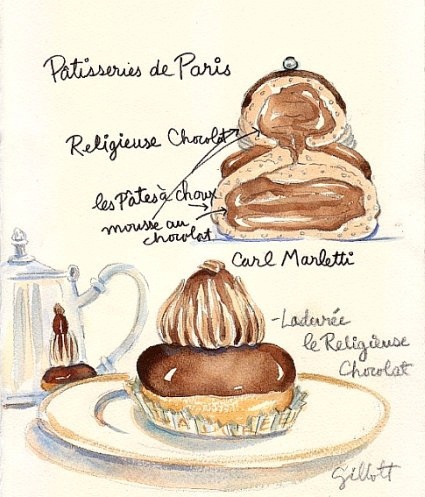 Pâtisseries de Paris
Religieuse Chocolat
les Pâtes à choux
mousse au
chocolat
Carl Marletti
-Ladurée
le Religieuse
Chocolat
LADUREE
Gillott